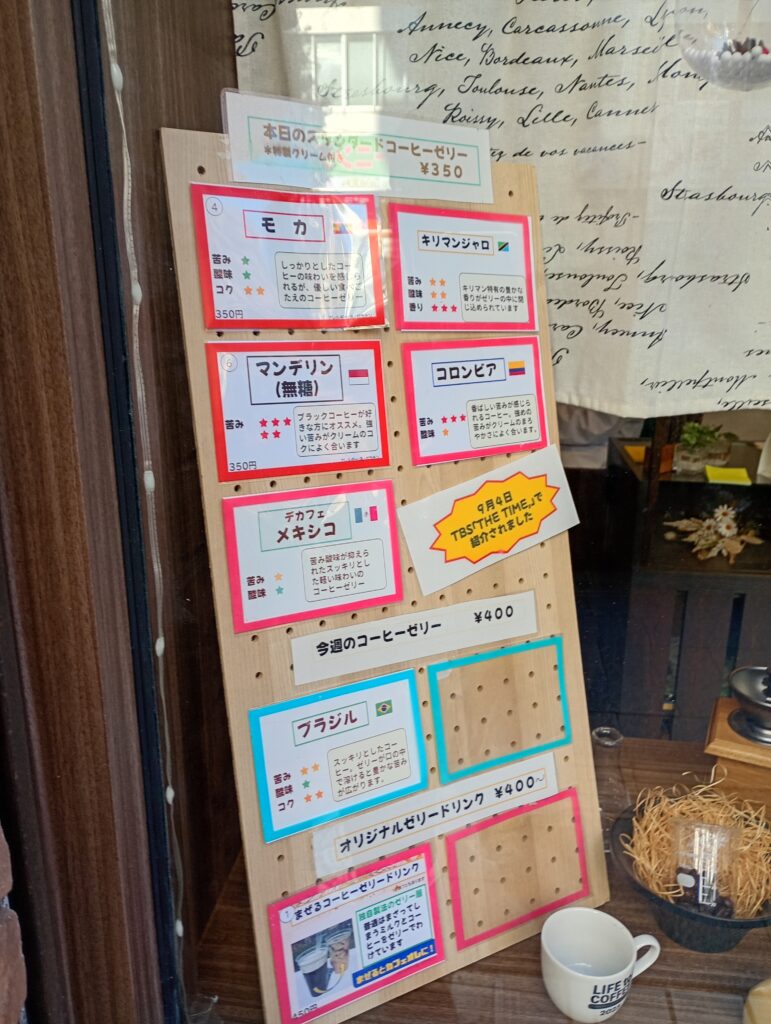 Annecy, Carcassonne, Dijon
Nice, Bordeaux, Marseille
Strasbourg, Toulouse, Nantes,
Roissy, Lille, Canner
de vos vacances-
Strasbourg
本日のスタンダードコーヒーゼリー
*特製クリーム付き
¥350
4
モカ
苦み ★
酸味 ★
コク ★★
しっかりとしたコー
ヒーの味わいを感じら
れるが、優しい食べご
たえのコーヒーゼリー
350円
キリマンジャロ
苦み ★★
酸味 ★★
香り ★★★
キリマン特有の豊かな
香りがゼリーの中に閉
じ込められています
6
マンデリン
(無糖)
苦み ★★★
★★
ブラックコーヒーが好
きな方にオススメ。強
い苦みがクリームのコ
クによく合います
350円
コロンビア
苦み ★★★
酸味 ★
香ばしい苦みが感じら
れるコーヒー。強めの
苦みがクリームのまろ
やかさによく合います。
デカフェ
メキシコ
苦み ★
酸味 ★
苦み酸味が抑えら
れたスッキリとし
た軽い味わいの
コーヒーゼリー
9月4日
TBS「THE TIME,」で
紹介されました
今週のコーヒーゼリー ¥400
ブラジル
苦み ★★
酸味 ★
コク ★★
スッキリとしたコー
ヒー。ゼリーが口の中
で溶けると豊かな苦み
が広がります。
オリジナルゼリードリンク ¥400~
1
まぜるコーヒーゼリードリンク
独自製法のゼリー層
普通はまざってし
まうミルクとコー
ヒーをゼリーでわ
けています
まぜるとカフェオレに!
450円
LIFE
COFFEE